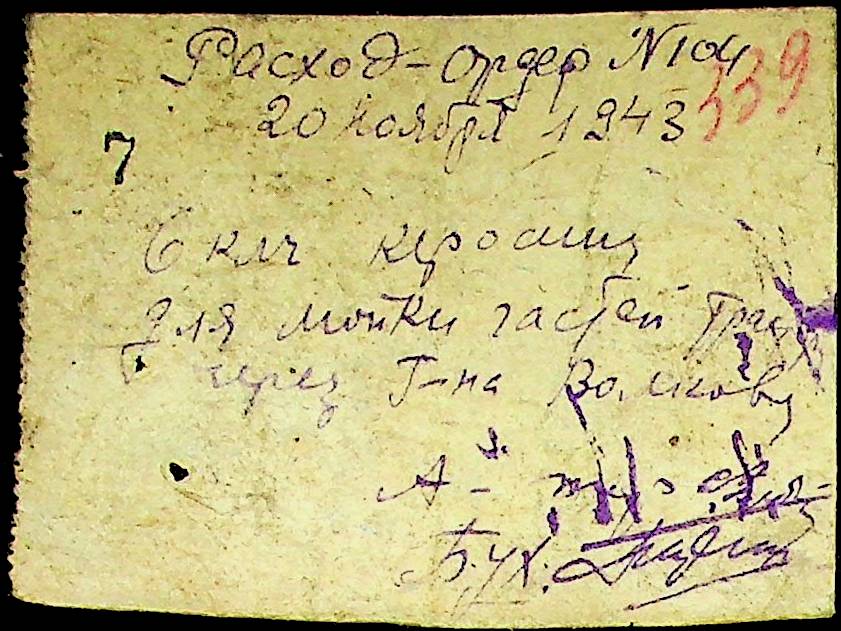 Расход-ордер №104
339
20 ноября 1943
7
6 клг керосину
для мойки частей трак
через Г-на Волкову
А-
Бух.